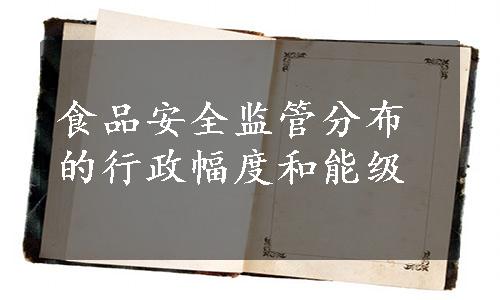 食品安全监管分布
的行政幅度和能级